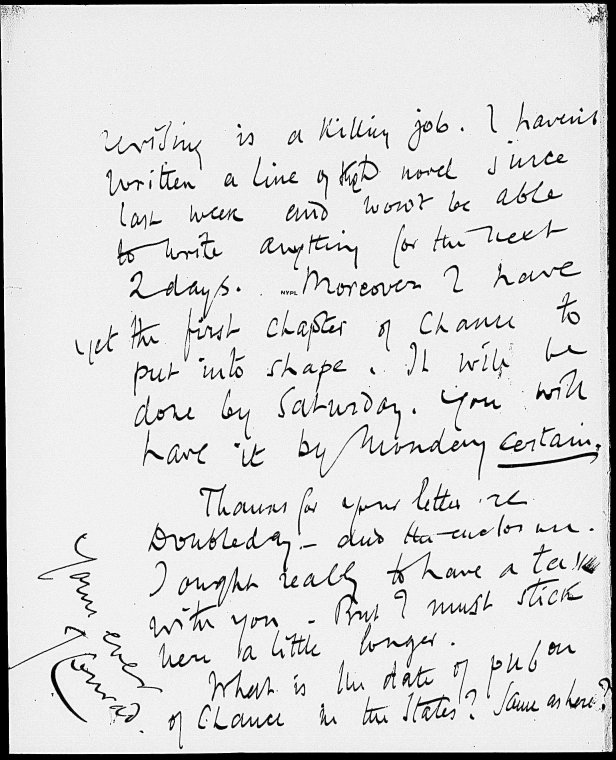 writing is a killing job. I haven't
written a line of novel since
last week and won't be able
to write anything for the next
2 days. NYPL Moreover I have
yet the first chapter of Chance to
put into shape. It will be
done by Saturday. You will
have it by Monday certain.
Thanks for your letter re
Doubleday - and the enclosure.
I ought really to have a talk
with you - But I must stick
here a little longer.
What is the date of pub on
of Chance in the States? Same as here?
Yours ever
J Conrad.